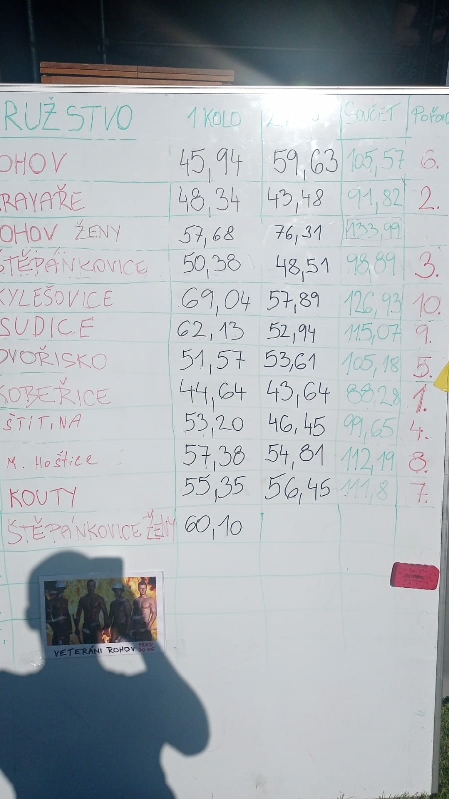 RUŽSTVO 1 KOLO 2. SOUČET Pořad
OHOV 45,94 59,63 105,57 6.
RAVAŘE 48,34 43,48 91,82 2.
OHOV ŽENY 57,68 76,31 133,99
ŠTĚPÁNKOVICE 50,38 48,51 98,89 3.
KYLEŠOVICE 69,04 57,89 126,93 10.
SUDICE 62,13 52,94 115,07 9.
DVOŘISKO 51,57 53,61 105,18 5.
KOBEŘICE 44,64 43,64 88,28 1.
ŠTÍTINA 53,20 46,45 99,65 4.
M. Hoštice 57,38 54,81 112,19 8.
KOUTY 55,35 56,45 111,8 7.
ŠTĚPÁNKOVICE ŽENY 60,10
VETERÁNI ROHOV